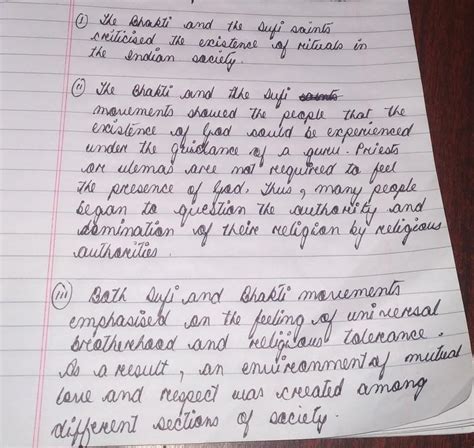 (i) The Bhakti and the Sufi saints
criticised the existence of rituals in
the Indian society.
(ii) The Bhakti and the Sufi saints
movements showed the people that the
existence of God could be experienced
under the guidance of a guru. Priests
or ulemas are not required to feel
the presence of God. Thus, many people
began to question the authority and
domination of their religion by religious
authorities.
(iii) Both Sufi and Bhakti movements
emphasised on the feeling of universal
brotherhood and religious tolerance.
As a result, an environment of mutual
love and respect was created among
different sections of society.